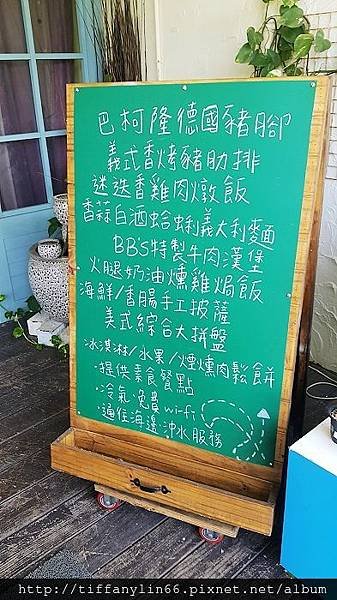 巴柯隆德國豬腳
義式香烤豬肋排
迷迭香雞肉燉飯
香蒜白酒蛤蜊義大利麵
BB'S特製牛肉漢堡
火腿奶油燻雞焗飯
海鮮/香腸手工披薩
美式綜合大拼盤
冰淇淋/水果/煙燻肉鬆餅
·提供素食餐點
·冷氣·免費wifi
·通往海邊·沖水服務
http://tiffanylin66.pixnet.net/album